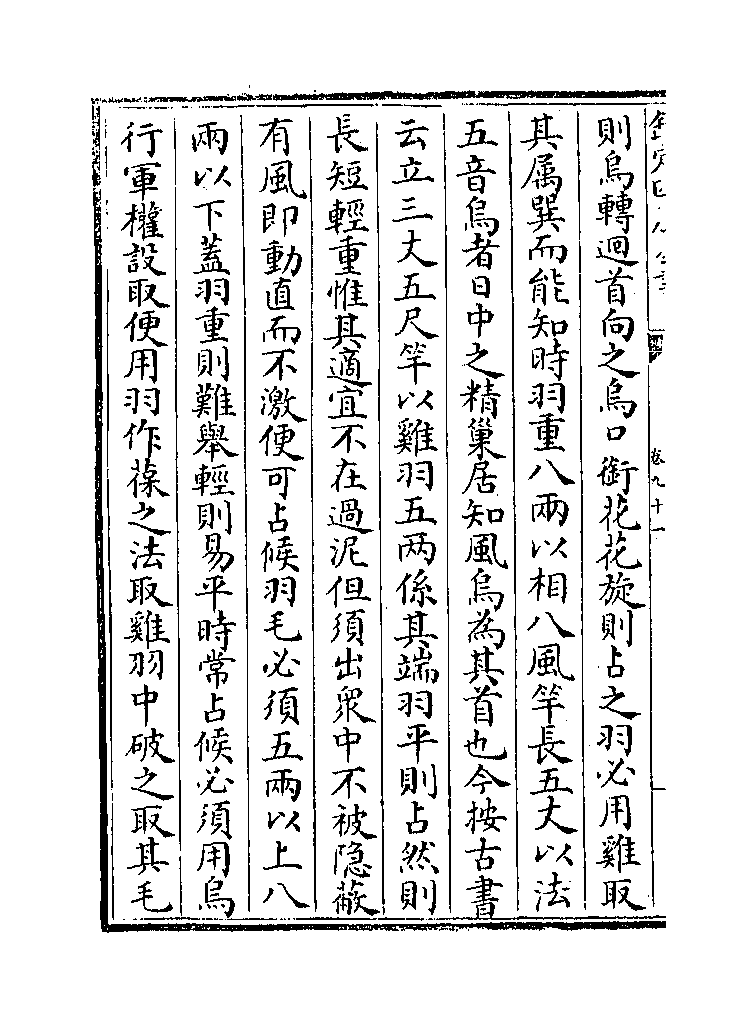 則烏轉迴首向之烏口銜花花旋則占之羽必用雞取
其属巽而能知時羽重八兩以相八風竿長五丈以法
五音烏者日中之精巢居知風烏為其首也今按古書
云立三丈五尺竿以雞羽五两係其端羽平則占然則
長短輕重惟其適宜不在過泥但須出衆中不被隐蔽
有風即動直而不激便可占候羽毛必須五兩以上八
兩以下蓋羽重則難舉輕則易平時常占候必須用烏
行軍權設取便用羽作葆之法取雞羽中破之取其毛
卷九十一